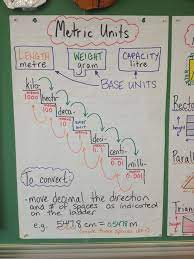 Metric Units
LENGTH
metre
WEIGHT
gram
CAPACITY
litre
BASE UNITS
kilo-
1000
hecto-
100
deca-
10
BASE UNIT
deci-
0.1
centi-
0.01
milli-
0.001
To convert:
- move decimal the direction
and # of spaces as indicated
on the ladder
e.g. 547.8 cm =
Recta
Parall
Tra